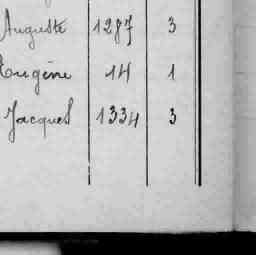 Auguste 1287 3
Eugène 14 1
Jacques 1334 3